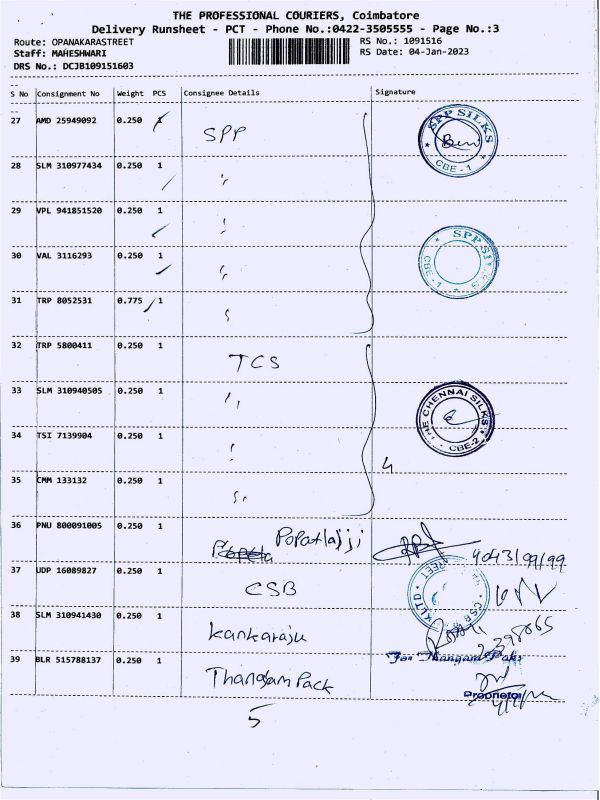 THE PROFESSIONAL COURIERS, Coimbatore
Delivery Runsheet - PCT - Phone No.:0422-3505555 - Page No.:3
Route: OPANAKARASTREET RS No.: 1091516
Staff: MAHESHWARI RS Date: 04-Jan-2023
DRS No.: DCJB109151603
S No Consignment No Weight PCS Consignee Details Signature
27 AMD 25949092 0.250 1 SPP
SPP SILKS CBE - 1
28 SLM 310977434 0.250 1 "
29 VPL 941851520 0.250 1 "
30 VAL 3116293 0.250 1 "
SPP SILKS CBE - 1
31 TRP 8052531 0.775 1 "
32 TRP 5800411 0.250 1 TCS
33 SLM 310940505 0.250 1 "
THE CHENNAI SILKS CBE-2
34 TSI 7139904 0.250 1 "
4
35 CMM 133132 0.250 1 "
36 PNU 800091005 0.250 1 Popatlalji
37 UDP 16089827 0.250 1 CSB
38 SLM 310941430 0.250 1 Kankaraju
For Thangam Paks
39 BLR 515788137 0.250 1 Thangam Pack
Proprietor
5